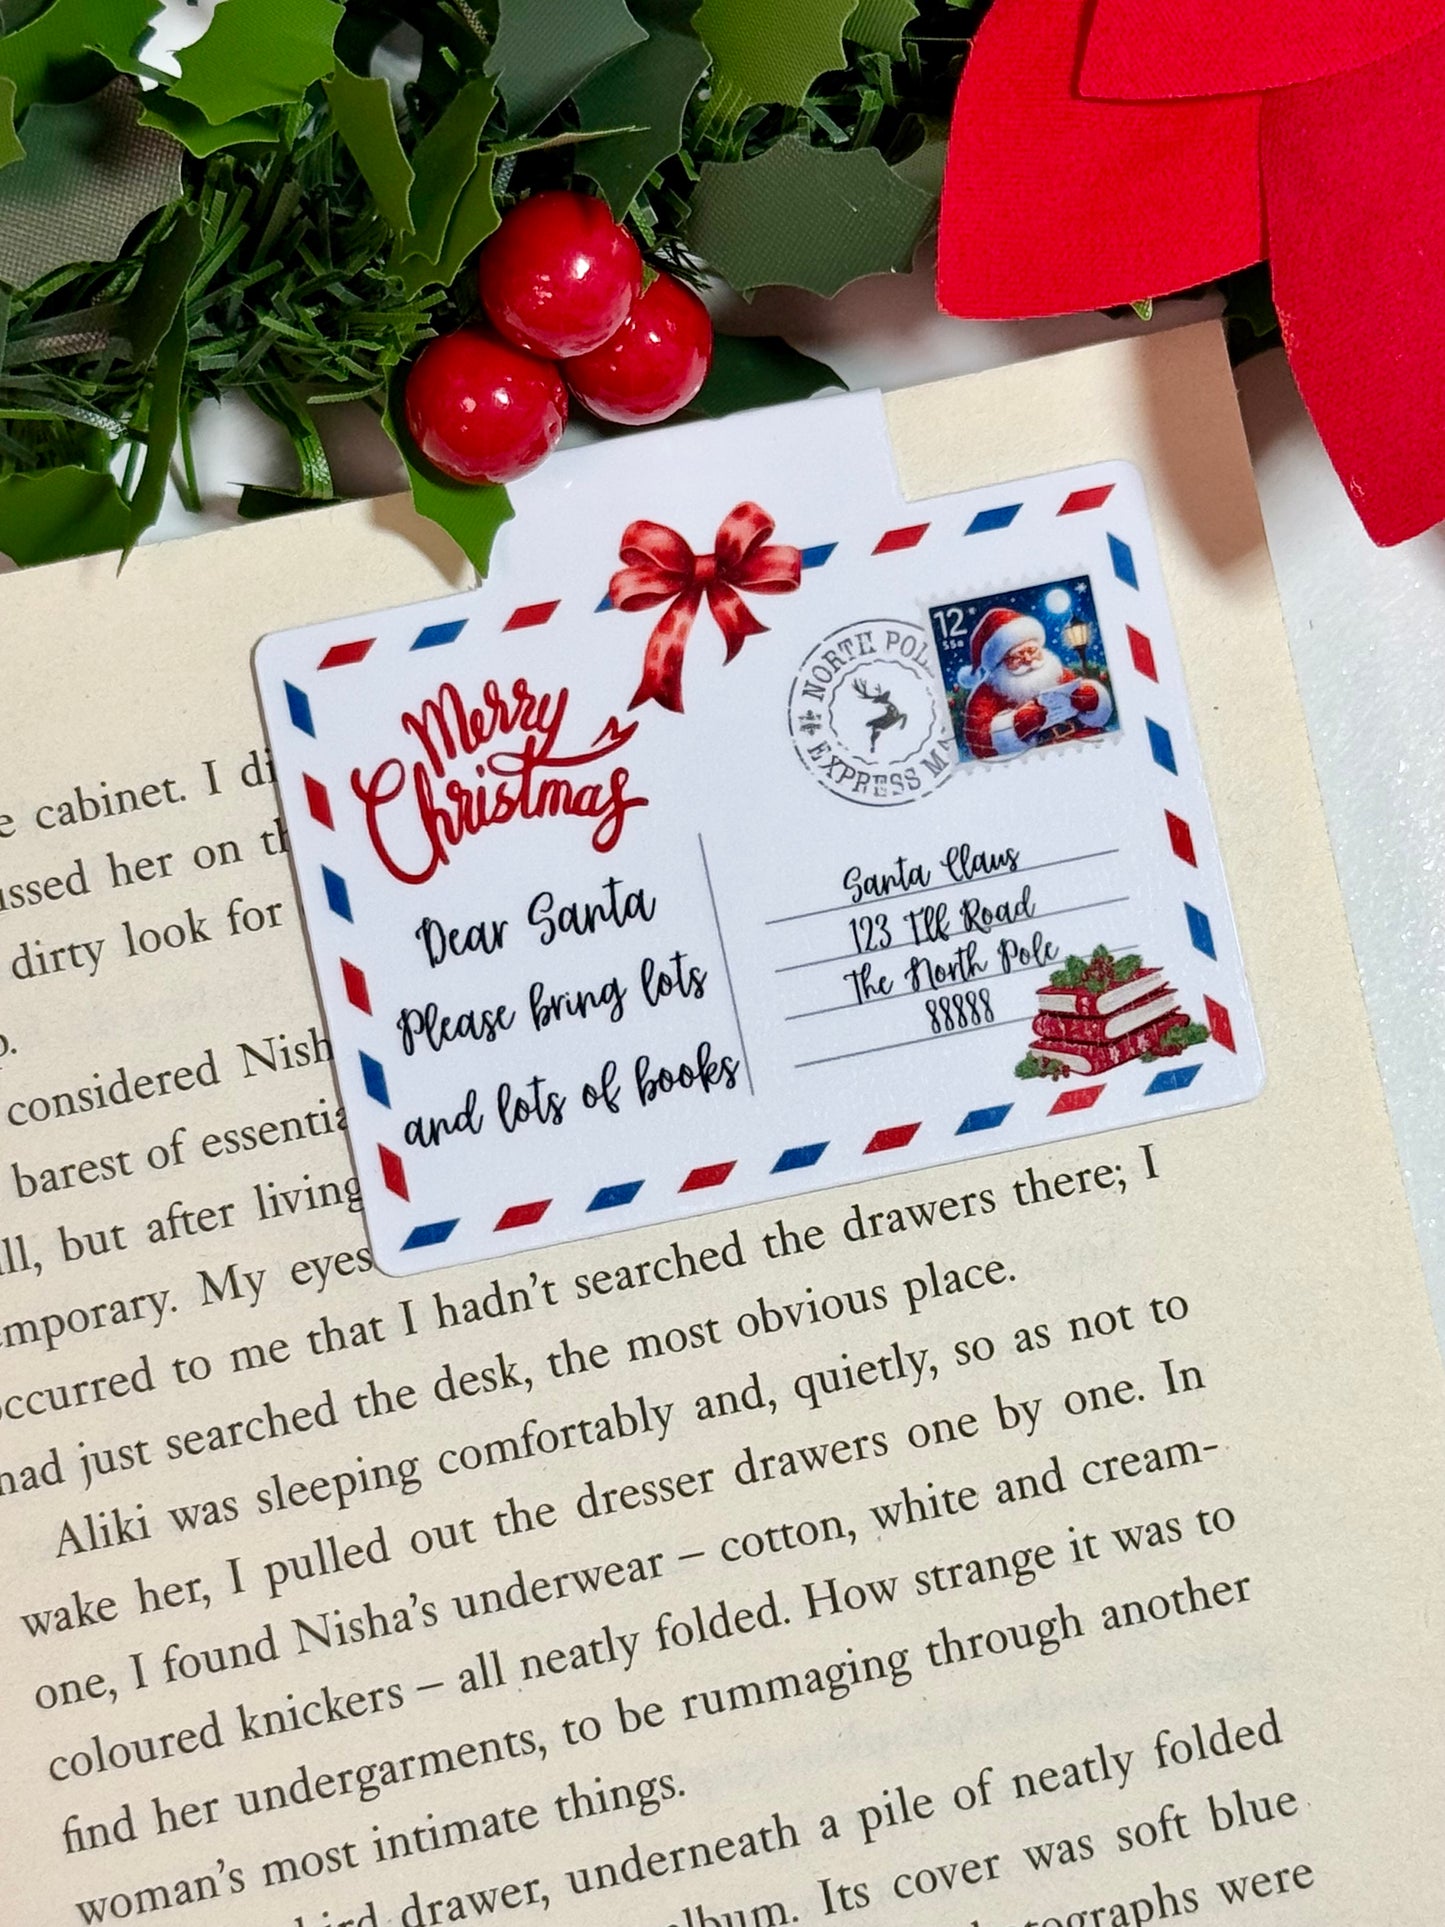 Merry
Christmas
Dear Santa
Please bring lots
and lots of books
NORTH POL
EXPRESS MA
12
Santa Claus
123 Elf Road
The North Pole
88888
cabinet. I di
ussed her on th
dirty look for
considered Nish
barest of essentia
ll, but after living
emporary. My eyes
occurred to me that I hadn't searched the drawers there; I
had just searched the desk, the most obvious place.
Aliki was sleeping comfortably and, quietly, so as not to
wake her, I pulled out the dresser drawers one by one. In
one, I found Nisha's underwear – cotton, white and cream-
coloured knickers – all neatly folded. How strange it was to
find her undergarments, to be rummaging through another
woman's most intimate things.
ird drawer, underneath a pile of neatly folded
lbum. Its cover was soft blue
tographs were